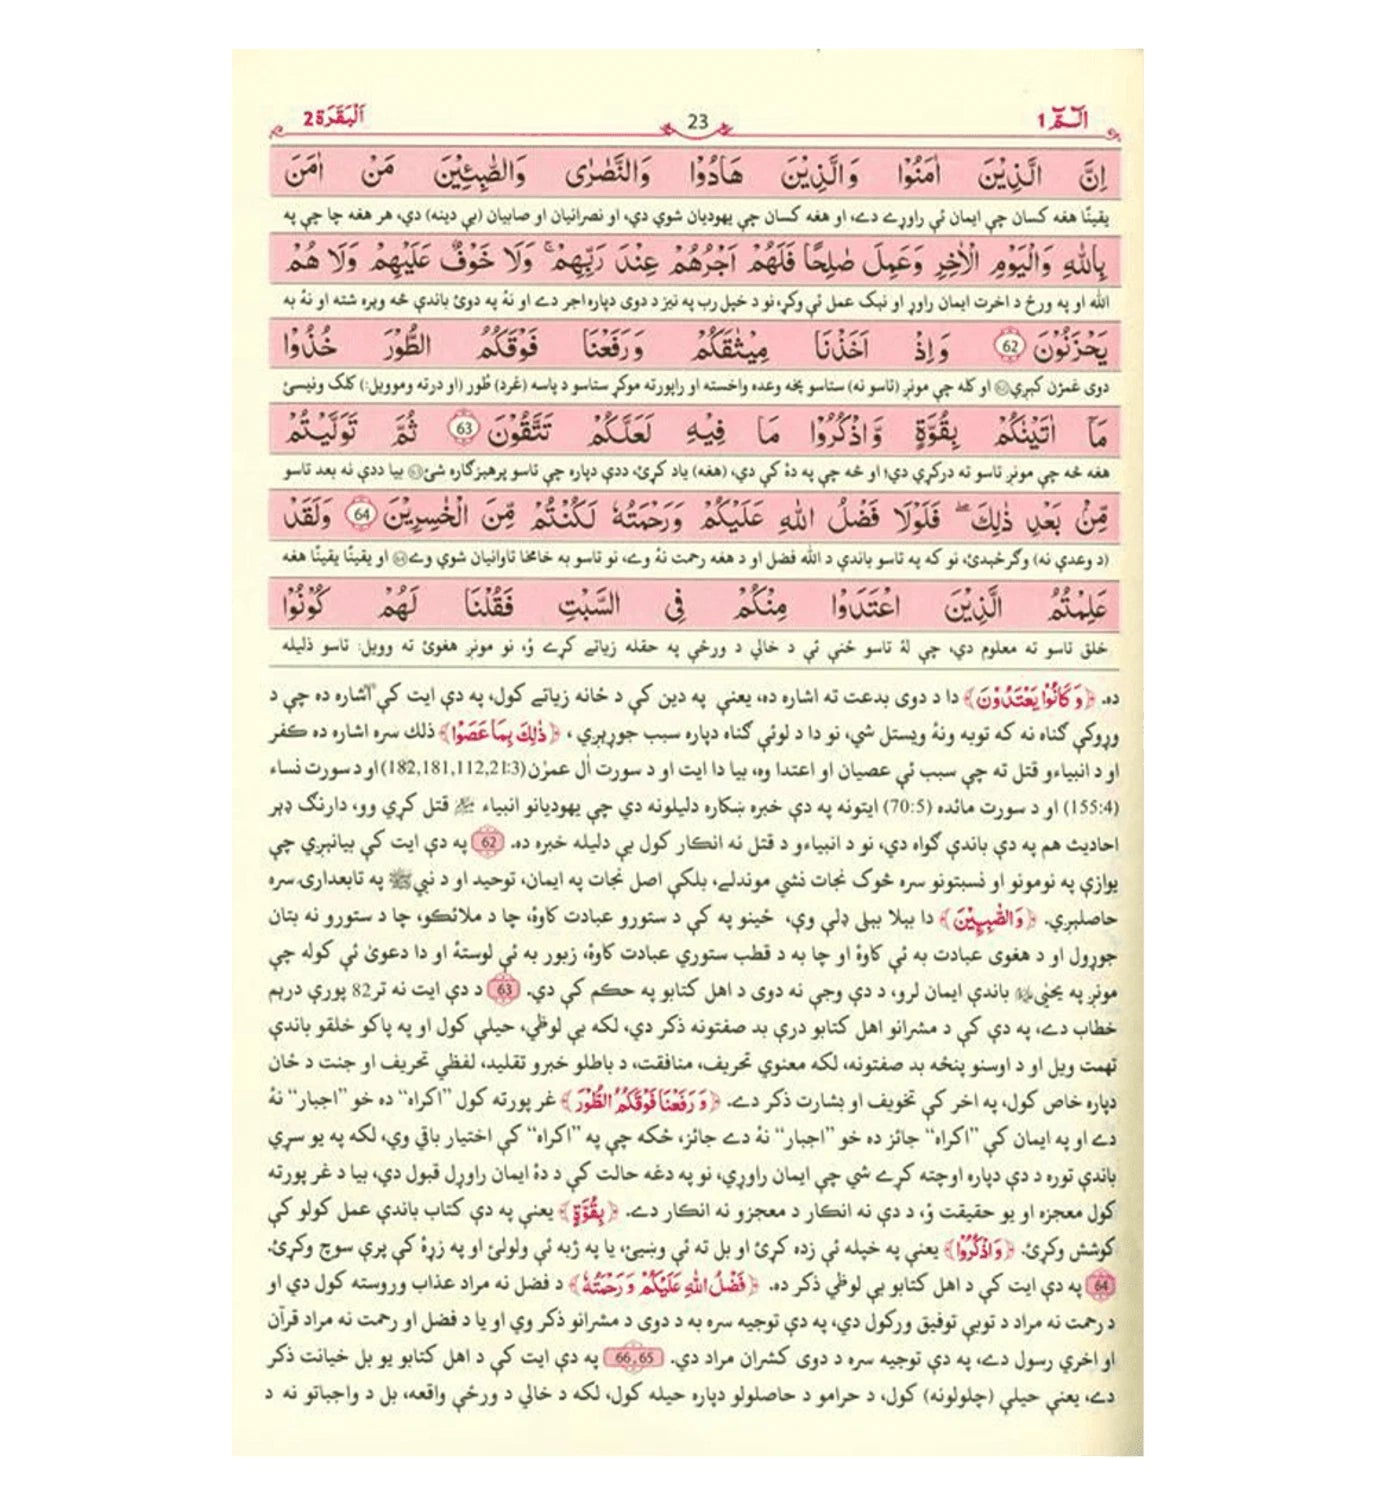 الٓـمّٓ 1
23
اَلْبَقَرَة 2
اِنَّ الَّذِيْنَ اٰمَنُوْا وَالَّذِيْنَ هَادُوْا وَالنَّصٰرٰى وَالصّٰبِـِٕيْنَ مَنْ اٰمَنَ
يقينًا هغه کسان چې ايمان ئې راوړے دے، او هغه کسان چې يهوديان شوي دي، او نصرانيان او صابيان (بې دينه) دي، هر هغه چا چې په
بِاللّٰهِ وَالْيَوْمِ الْاٰخِرِ وَعَمِلَ صٰلِحًا فَلَهُمْ اَجْرُهُمْ عِنْدَ رَبِّهِمْ ۚ وَلَا خَوْفٌ عَلَيْهِمْ وَلَا هُمْ
الله او په ورځ د اخرت ايمان راوړ او نېک عمل ئې وکړ، نو د خپل رب په نيز د دوی دپاره اجر دے او نۀ په دوئ باندې څه ويره شته او نۀ به
يَحْزَنُوْنَ 62 وَاِذْ اَخَذْنَا مِيْثٰقَكُمْ وَرَفَعْنَا فَوْقَكُمُ الطُّوْرَ خُذُوْا
دوی غمژن کېږي او کله چې مونږ (تاسو نه) ستاسو پخه وعده واخسته او راپورته موکړ ستاسو د پاسه (غرد) طُور (او درته وموويل:) کلک ونيسئ
مَاۤ اٰتَيْنٰكُمْ بِقُوَّةٍ وَّاذْكُرُوْا مَا فِيْهِ لَعَلَّكُمْ تَتَّقُوْنَ 63 ثُمَّ تَوَلَّيْتُمْ
هغه څه چې مونږ تاسو ته درکړي دي؛ او څه چې په دۀ کې دي، (هغه) ياد کړئ، ددې دپاره چې تاسو پرهېزګاره شئ بيا ددې نه بعد تاسو
مِّنْۢ بَعْدِ ذٰلِكَ ۖ فَلَوْلَا فَضْلُ اللّٰهِ عَلَيْكُمْ وَرَحْمَتُهٗ لَكُنْتُمْ مِّنَ الْخٰسِرِيْنَ 64 وَلَقَدْ
(د وعدې نه) وګرځېدئ، نو که په تاسو باندې د الله فضل او د هغه رحمت نۀ وے، نو تاسو به خامخا تاوانيان شوي وے او يقينًا يقينًا هغه
عَلِمْتُمُ الَّذِيْنَ اعْتَدَوْا مِنْكُمْ فِى السَّبْتِ فَقُلْنَا لَهُمْ كُوْنُوْا
خلق تاسو ته معلوم دي، چې لۀ تاسو ځنې ئې د خالي د ورځې په حقله زياتے کړے ؤ، نو مونږ هغوئ ته وويل: تاسو ذليله
ده. ﴿وَ كَانُوْا يَعْتَدُوْنَ﴾ دا د دوی بدعت ته اشاره ده، يعنې په دين کې د ځانه زياتے کول، په دې ايت کې اشاره ده چې د
وړوکې ګناه نه که توبه ونۀ ويستل شي، نو دا د لوئې ګناه دپاره سبب جوړېږي، ﴿ذٰلِكَ بِمَا عَصَوْا﴾ ذلك سره اشاره ده کفر
او د انبياءو قتل ته چې سبب ئې عصيان او اعتدا وه، بيا دا ايت او د سورت اٰل عمرٰن (182,181,112,21:3) او د سورت نساء
(155:4) او د سورت مائده (70:5) ايتونه په دې خبره ښکاره دليلونه دي چې يهوديانو انبياء قتل کړي وو، دارنګ ډېر
احاديث هم په دې باندې ګواه دي، نو د انبياءو د قتل نه انکار کول بې دليله خبره ده. 62 په دې ايت کې بيانېږي چې
يوازې په نومونو او نسبتونو سره څوک نجات نشي موندلے، بلکې اصل نجات په ايمان، توحيد او د نبي ﷺ په تابعدارۍ سره
حاصلېږي. ﴿وَالصّٰبِـِٕيْنَ﴾ دا بيلا بېلې ډلې وې، ځينو په کې د ستورو عبادت کاوۀ، چا د ملائکو، چا د ستورو نه بتان
جوړول او د هغوی عبادت به ئې کاوۀ او چا به د قطب ستوري عبادت کاوۀ، زبور به ئې لوستۀ او دا دعویٰ ئې کوله چې
مونږ په يحيٰي باندې ايمان لرو، د دې وجې نه دوی د اهل کتابو په حکم کې دي. 63 د دې ايت نه تر 82 پورې درېم
خطاب دے، په دې کې د مشرانو اهل کتابو درې بد صفتونه ذکر دي، لکه بې لوظي، حيلې کول او په پاکو خلقو باندې
تهمت ويل او د اوسنو پنځه بد صفتونه، لکه معنوي تحريف، منافقت، د باطلو خبرو تقليد، لفظي تحريف او جنت د ځان
دپاره خاص کول، په اخر کې تخويف او بشارت ذکر دے. ﴿وَ رَفَعْنَا فَوْقَكُمُ الطُّوْرَ﴾ غر پورته کول "اکراه" ده خو "اجبار" نۀ
دے او په ايمان کې "اکراه" جائز ده خو "اجبار" نۀ دے جائز، ځکه چې په "اکراه" کې اختيار باقي وي، لکه په يو سړي
باندې توره د دې دپاره اوچته کړے شي چې ايمان راوړي، نو په دغه حالت کې د دۀ ايمان راوړل قبول دي، بيا د غر پورته
کول معجزه او يو حقيقت ؤ، د دې نه انکار د معجزو نه انکار دے. ﴿بِقُوَّةٍ﴾ يعنې په دې کتاب باندې عمل کولو کې
کوشش وکړئ. ﴿وَاذْكُرُوْا﴾ يعنې په خپله ئې زده کړئ او بل ته ئې وښيئ، يا په ژبه ئې ولولئ او په زړۀ کې پرې سوچ وکړئ.
64 په دې ايت کې د اهل کتابو بې لوظي ذکر ده. ﴿فَضْلُ اللّٰهِ عَلَيْكُمْ وَ رَحْمَتُهٗ﴾ د فضل نه مراد عذاب وروسته کول دي او
د رحمت نه مراد د توبې توفيق ورکول دي، په دې توجيه سره به د دوی د مشرانو ذکر وي او يا د فضل او رحمت نه مراد قرآن
او اخري رسول دے، په دې توجيه سره د دوی کشران مراد دي. 66,65 په دې ايت کې د اهل کتابو يو بل خيانت ذکر
دے، يعنې حيلې (چلولونه) کول، د حرامو د حاصلولو دپاره حيله کول، لکه د خالي د ورځې واقعه، بل د واجباتو نه د